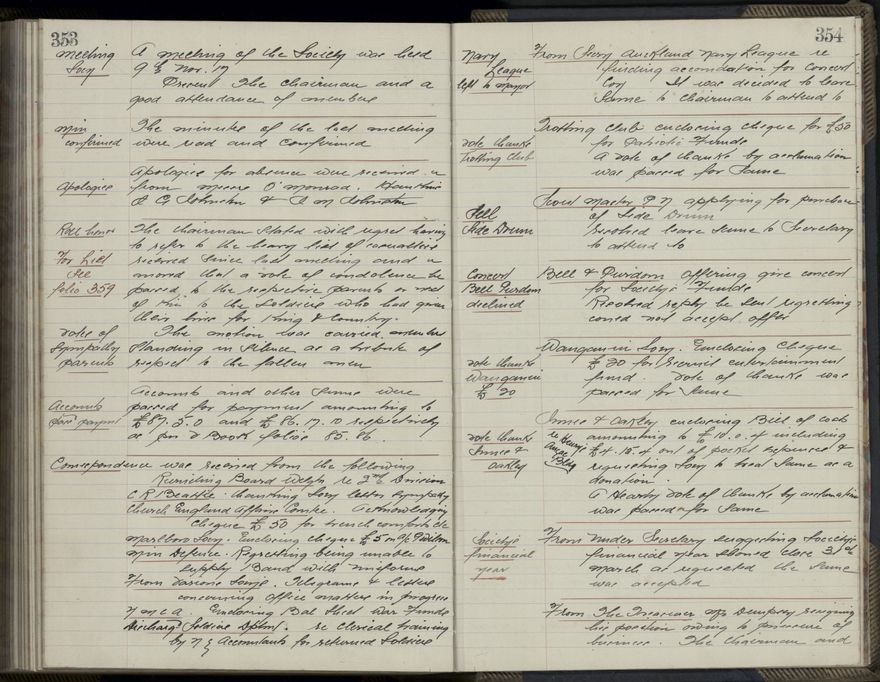 353
Meeting
Socy
A meeting of the Society was held
9th Nov. 17
Present The Chairman and a
good attendance of members
Min
confirmed
The minutes of the last meeting
were read and confirmed
Apologies
Apologies for absence were received
from Messrs O'Monrad.
Roll honor
For List
See
folio 359
The Chairman stated with regret having
to refer to the heavy list of casualties
received since last meeting and
moved that a vote of condolence be
passed to the respective parents or next
of Kin to the Soldiers who had given
their lives for King & Country.
Votes of
Sympathy
parents
The motion was carried members
standing in silence as a tribute of
respect to the fallen men
Accounts
pass payment
Accounts and other Sums were
passed for payment amounting to
£87. 3. 0 and £86. 17. 0 respectively
as per Book folios 85. 86.
Correspondence was received from the following
Recruiting Board Welgtn re 2nd Division
C R Beattie. thanking Socy letter Sympathy
Church England Affairs Comtee. Acknowledging
Cheque £50 for trench comforts etc
Marlboro Socy. Enclosing cheque £5
Min Defence. Regretting being unable to
supply Band with uniforms
From various Socys. Telegrams & letters
concerning office matters in progress
Y M C A. Enclosing Bal Sheet War Funds
Discharged Soldiers Dptmt. re Clerical training
by N Z Accountants for returned Soldiers
354
Navy
League
left to Mayor
From Secy Auckland Navy League re
finding accomodation for Concert
Coy It was decided to leave
same to Chairman to attend to
Vote thanks
Trotting Club
Trotting Club enclosing cheque for £50
for Patriotic Funds
A vote of thanks by acclamation
was passed for Same
Sell
Side Drum
Scout Master P N applying for purchase
of Side Drum
Resolved leave same to Secretary
to attend to
Concert
Bell Purdom
declined
Bell & Purdom offering give concert
for Societys Funds
Resolved reply be sent regretting
could not accept offer
Vote thanks
Wanganui
£20
Wanganui Socy. Enclosing Cheque
£20 for recruit entertainment
fund. Vote of thanks was
passed for Same
Vote thanks
Innes &
Oakley
re Henry
Anzac
Bldg
Innes & Oakley enclosing Bill of costs
amounting to £10. 0. 4 including
of out of pocket expenses &
requesting Socy to treat same as a
donation.
A Hearty vote of thanks by acclamation
was passed for Same
Society's
financial
year
From Under Secretary suggesting Society's
financial year should close 31st
March as requested the Same
was accepted
From The Treasurer Mr Dempsey resigning
his position owing to pressure of
business. The Chairman and